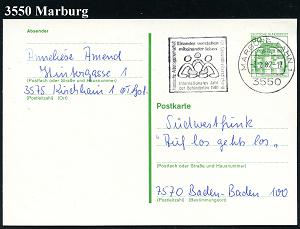 3550 Marburg
Absender
Anneliese Amend
Hintergasse 1
(Postfach oder Straße und Hausnummer)
3575 Kirchhain 1
(Postleitzahl) (Ort)
Einander verstehen
miteinander leben
Internationales Jahr
der Behinderten 1981
MARBURG, LAHN
3550
Postkarte
Südwestfunk
"Auf los geht's los"
(Postfach oder Straße und Hausnummer)
7570 Baden-Baden 100
(Postleitzahl) (Bestimmungsort)